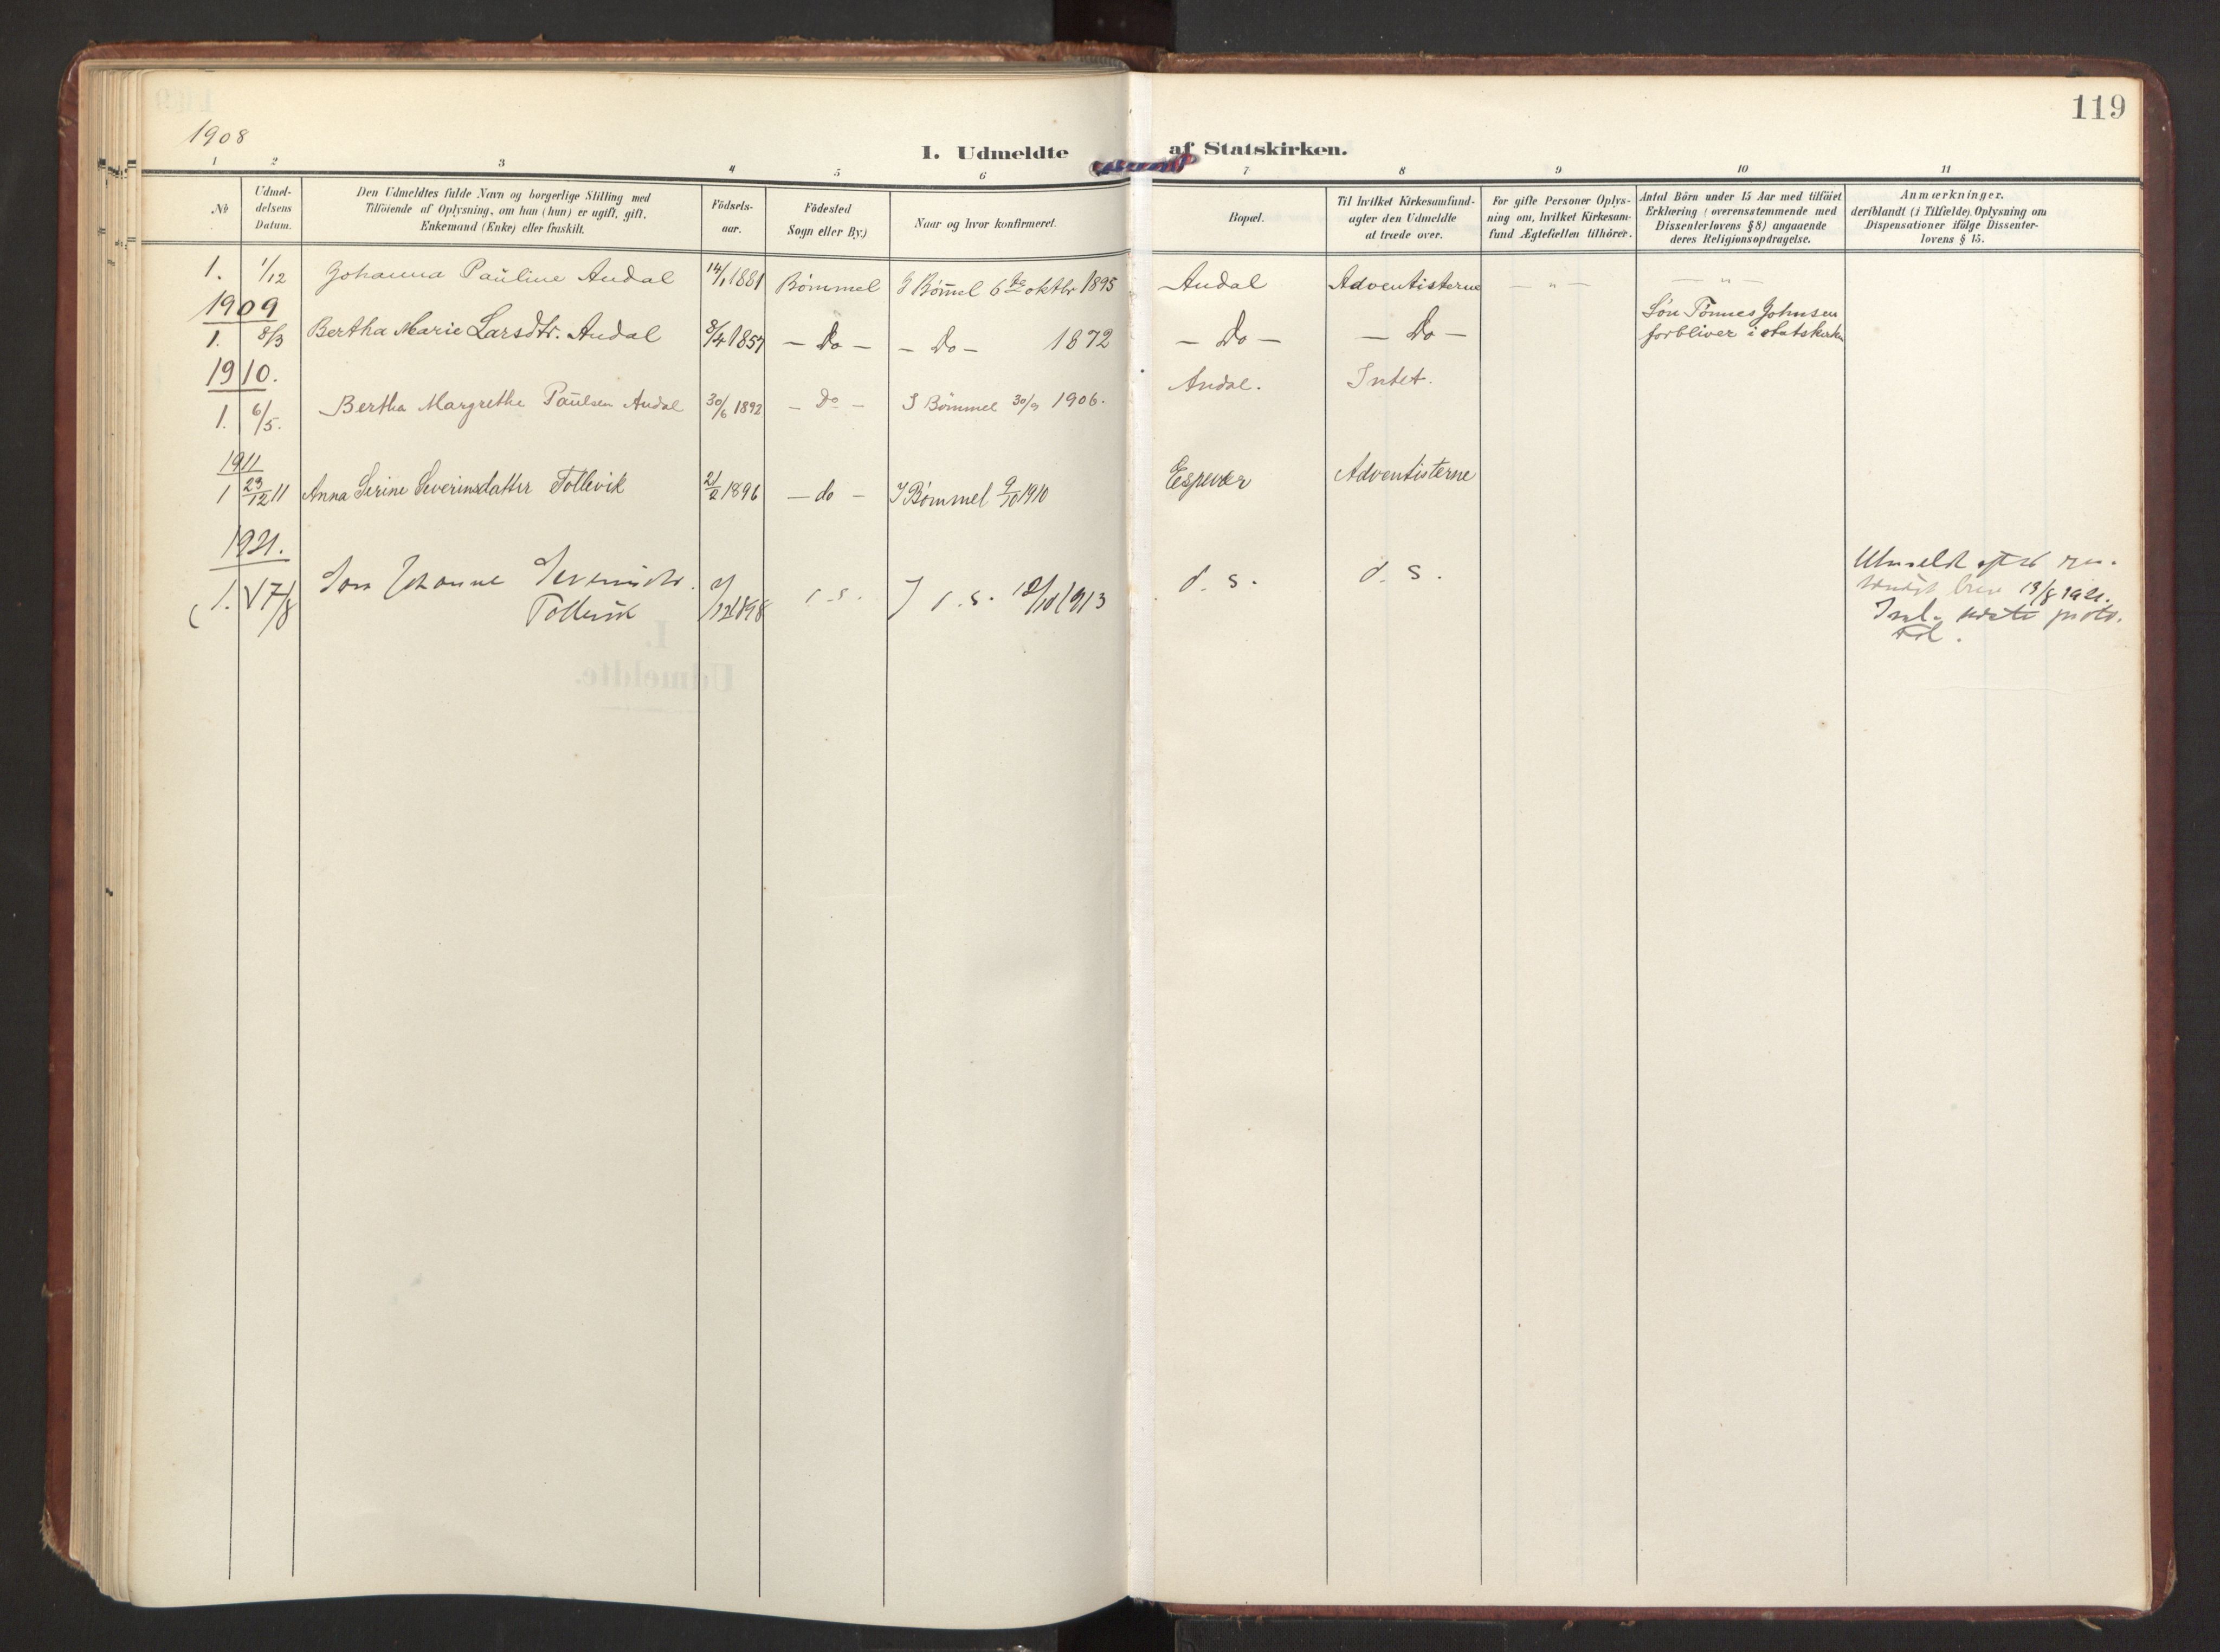 119
1908
I. Udmeldte af Statskirken.
1 2 3 4 5 6 7 8 9 10 11
No
Udmel-
delsens
Datum.
Den Udmeldtes fulde Navn og borgerlige Stilling med
Tilföiende af Oplysning, om han (hun) er ugift, gift,
Enkemand (Enke) eller fraskilt.
Födsels-
aar.
Födested
Sogn eller By.)
Naar og hvor konfirmeret.
Bopæl.
Til hvilket Kirkesamfund-
agter den Udmeldte
at træde over.
For gifte Personer Oplys-
ning om, hvilket Kirkesam-
fund Ægtefællen tilhörer.
Antal Börn under 15 Aar med tilföiet
Erklæring (overensstemmende med
Dissenterlovens § 8) angaaende
deres Religionsopdragelse.
Anmærkninger.
deriblandt (i Tilfælde) Oplysning om
Dispensationer ifölge Dissenter-
lovens § 15.
1. 1/12 Johanna Pauline Andal 14/1 1881 Bømmel I Bømel 6te oktbr 1895 Andal Adventisterne — " — — " —
1909
1. 8/3 Bertha Marie Larsdtr. Andal 8/4 1857 — Do — — Do — 1872 — Do — — Do — Søn Tønnes Johnsen
forbliver i statskirken
1910.
1. 6/5. Bertha Margrethe Paulsen Andal 30/6 1892 — Do — I Bømmel 30/9 1906. Andal. Intet.
1911
1 23/12 11 Anna Serine Severinsdatter Tollevik 21/2 1896 — do — I Bømmel 9/10 1910 Espevær Adventisterne
1921.
1. 17/8 Johanne Severinsdtr.
Tollevik /12 1898 d. s. I d. s. 12/10 1913 d. s. d. s.
Utmeldt
brev 13/8 1921.